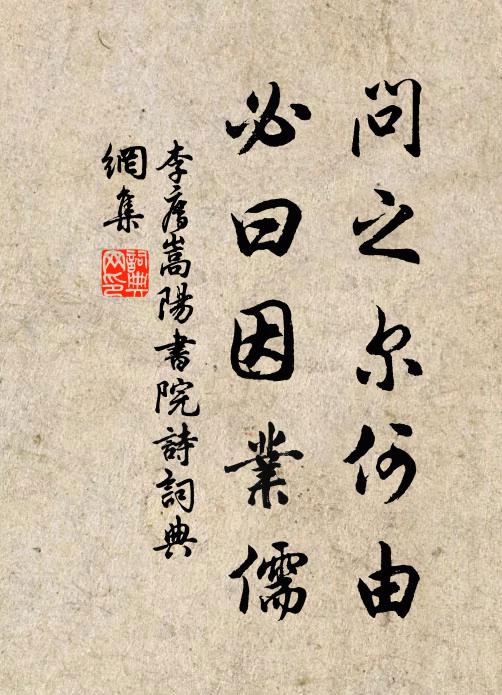 问之尔何由
必曰因業儒
李廌嵩陽書院詩詞典
網集
詞典
网印